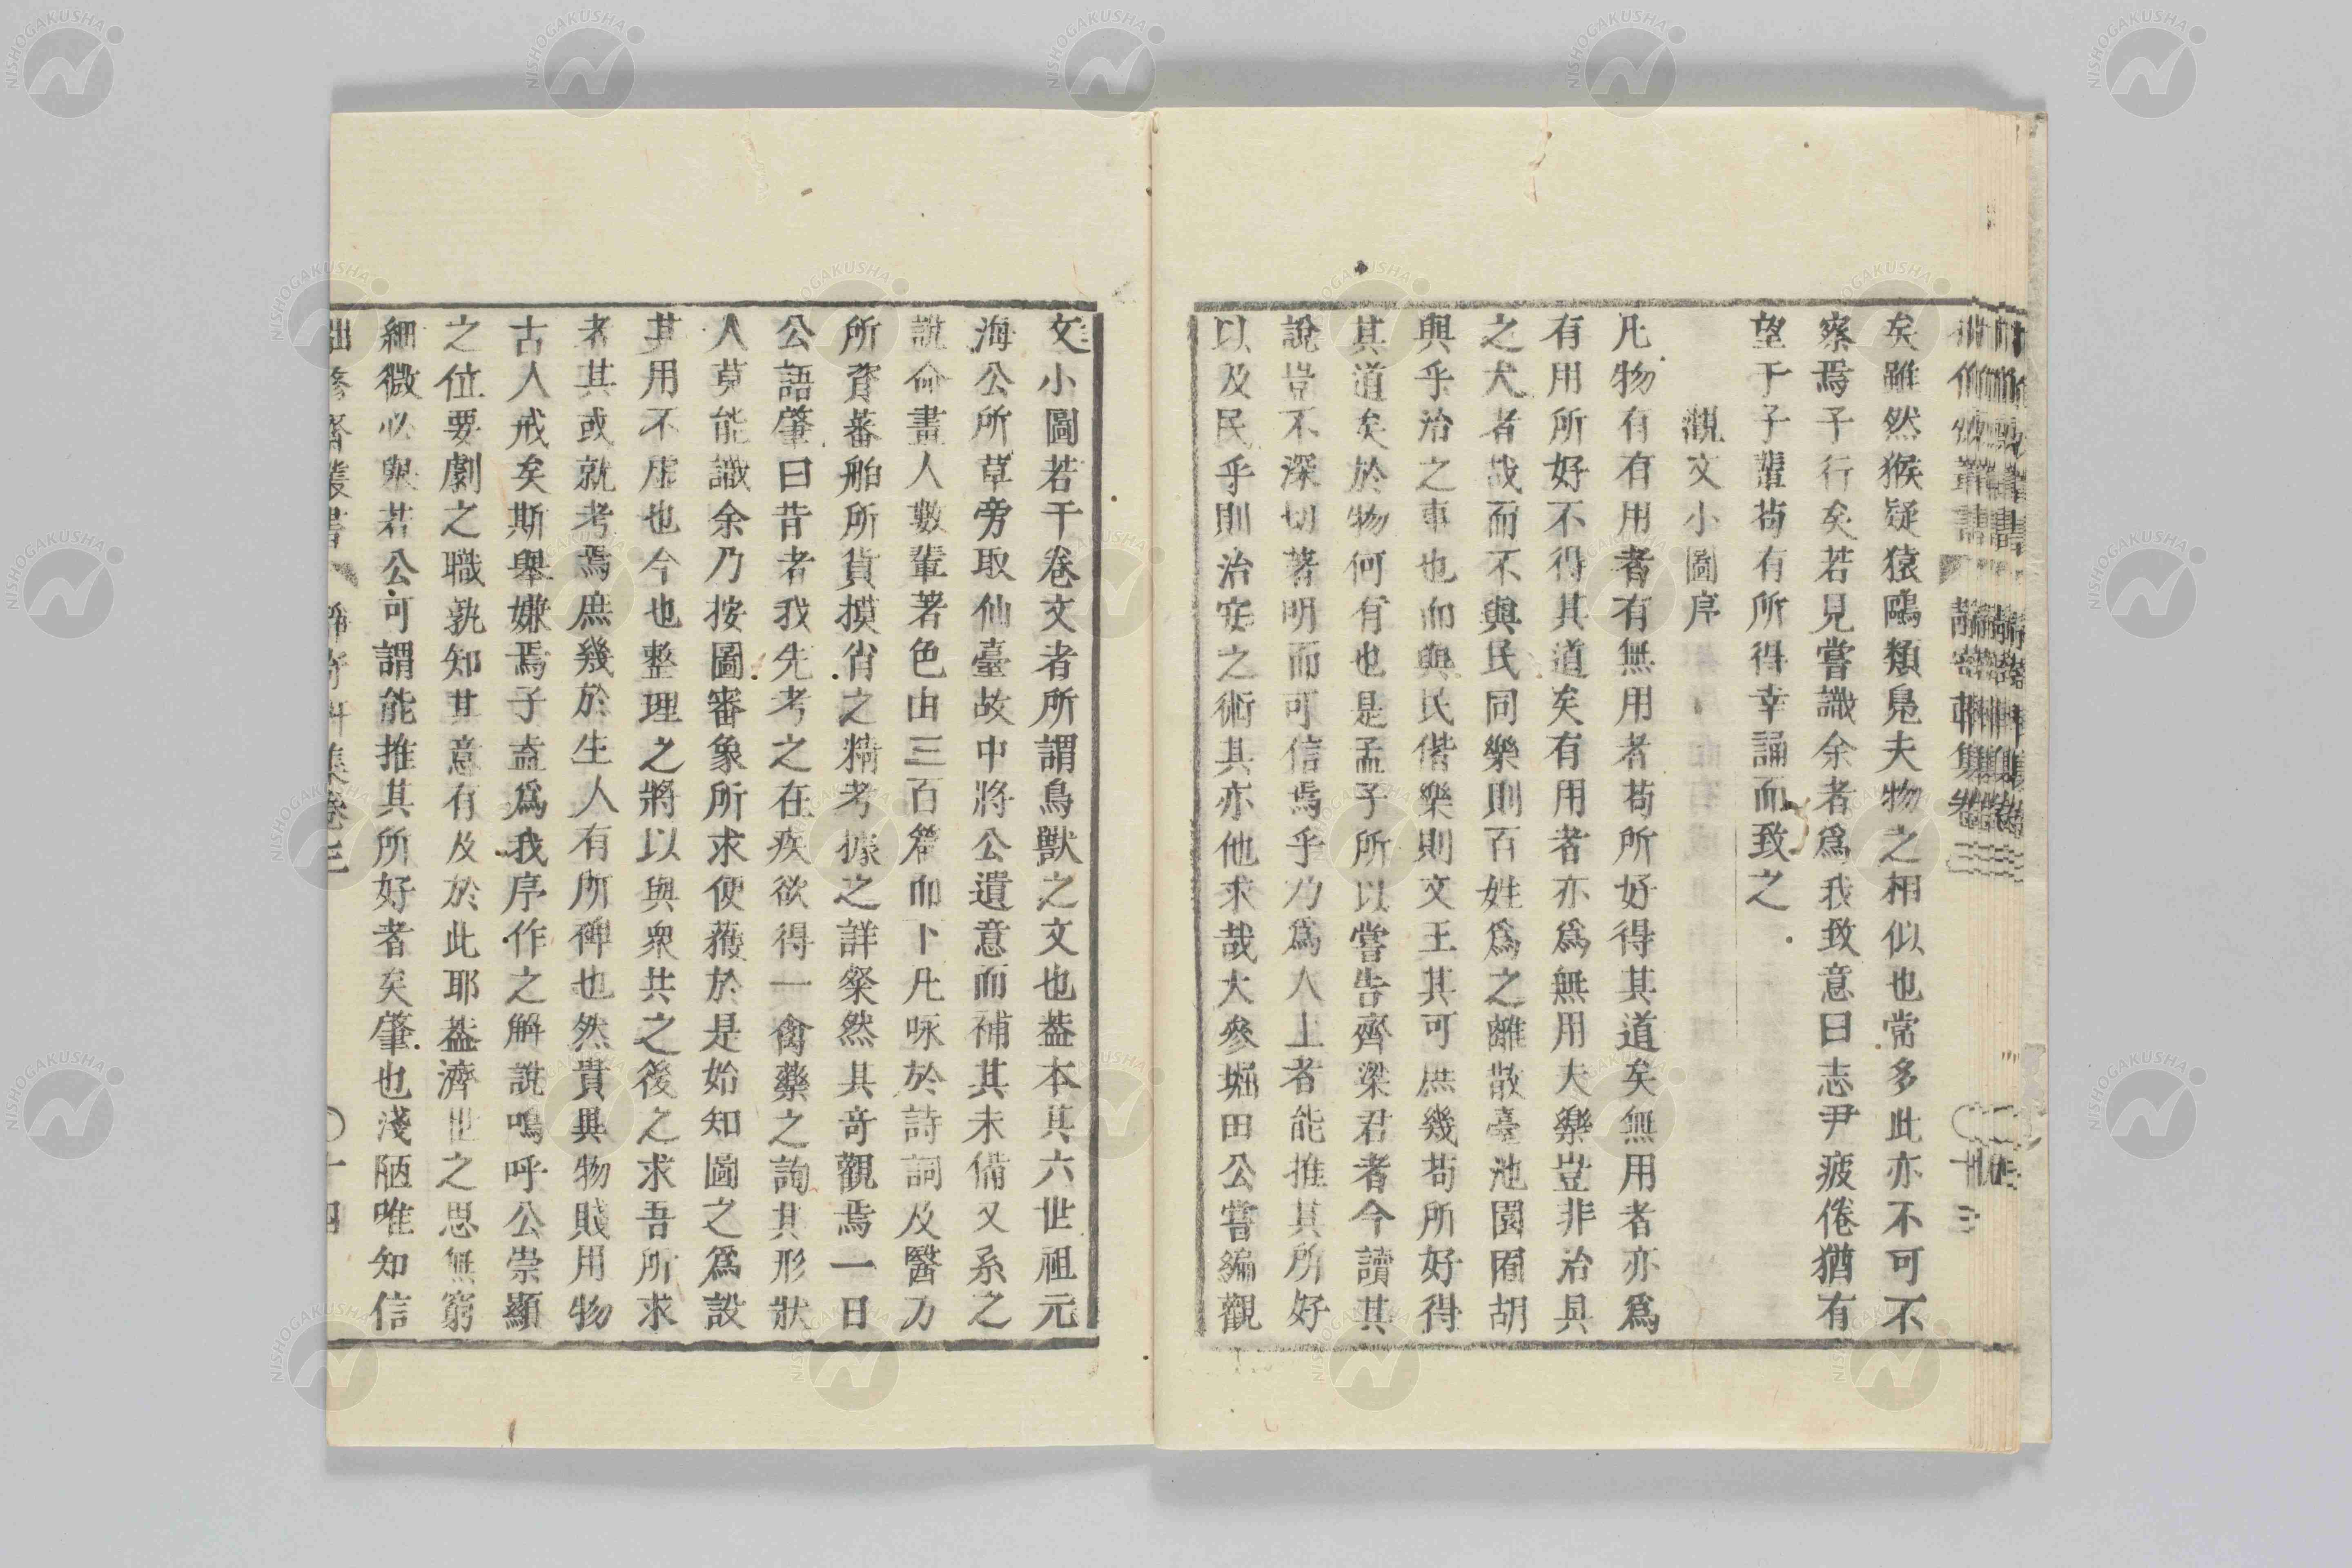 矣雖然猴疑猿鷗類鳧夫物之相似也常多此亦不可不
察焉予行矣若見嘗識余者爲我致意曰志尹疲倦猶有
望于子輩苟有所得幸誦而致之
觀文小圖序
凡物有有用者有無用者苟所好得其道矣無用者亦爲
有用所好不得其道矣有用者亦爲無用夫樂豈非治具
之犬者哉而不與民同樂則百姓爲之離散臺池園囿胡
與乎治之事也而與民偕樂則文王其可庶幾苟所好得
其道矣於物何有也是孟子所以嘗告齊梁君者今讀其
說豈不深切著明而可信焉乎乃爲人上者能推其所好
以及民乎則治安之術其亦他求哉大參堀田公嘗編觀
文小圖若干卷文者所謂鳥獸之文也葢本其六世祖元
海公所草旁取仙臺故中將公遺意而補其未備又系之
說命畫人數輩著色由三百翁而下凡咏於詩詞及醫方
所賚蕃舶所貨摸肖之精考據之詳粲然具奇觀焉一日
公語肇曰昔者我先考之在疾欲得一禽藥之詢其形狀
人莫能識余乃按圖審象所求便獲於是始知圖之爲設
其用不虛也今也整理之將以與衆共之後之求吾所求
者其或就考焉庶幾於生人有所裨也然貴與物賤用物
古人戒矣斯舉嫌焉子盍爲我序作之解說嗚呼公崇顯
之位要劇之職孰知其意有及於此耶葢濟世之思無窮
細微必與若公可謂能推其所好者矣肇也淺陋唯知信
齋叢書 集卷三 〇十四